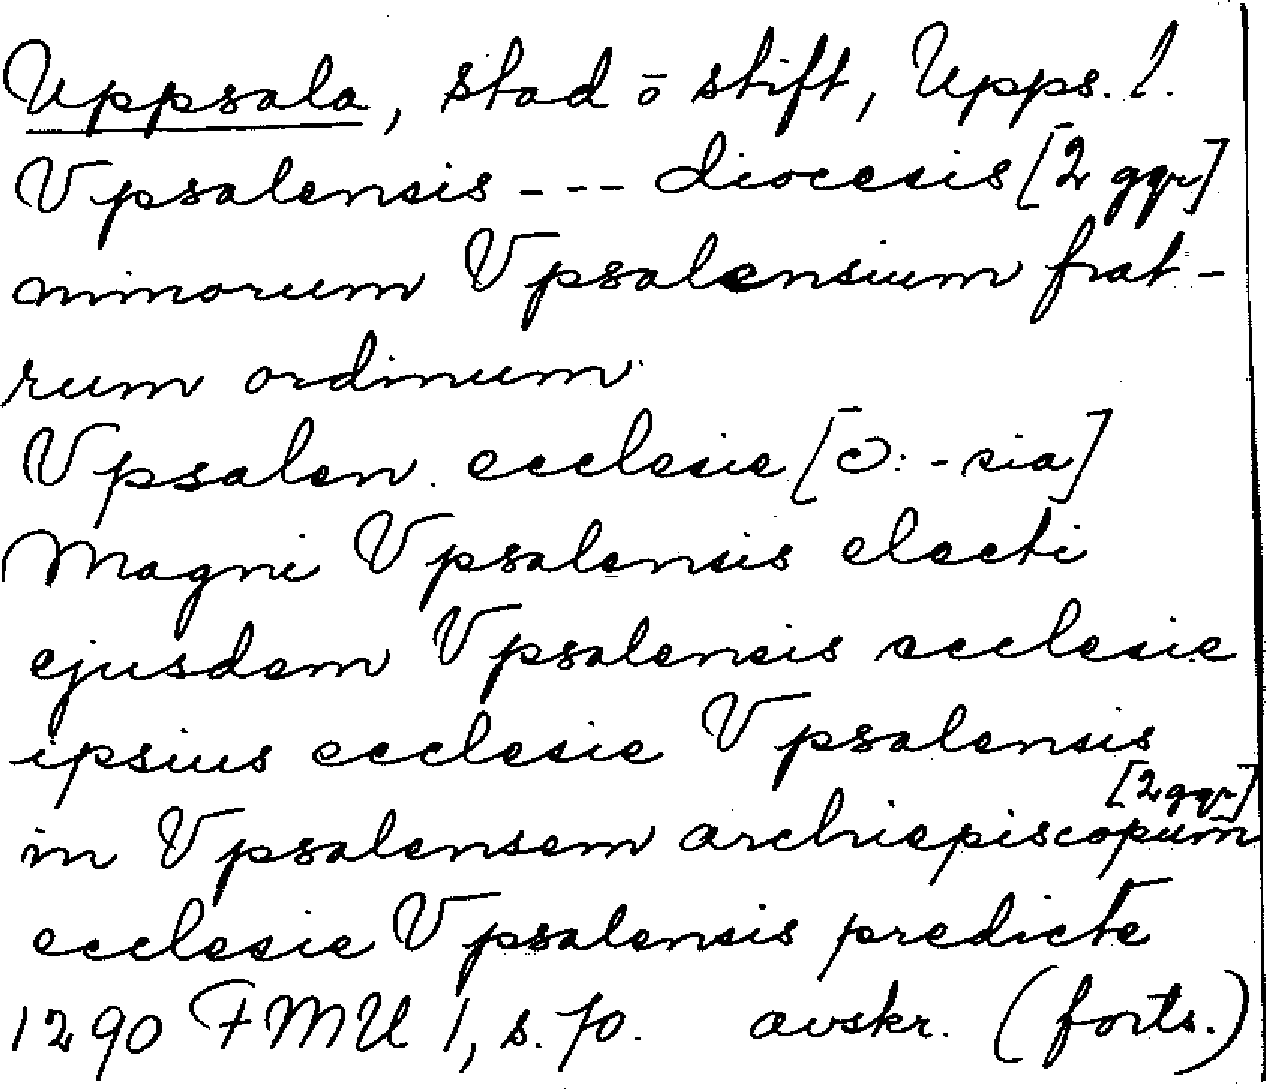 Uppsala, stad ō stift, Upps. l.
Vpsalensis --- diocesis [2 ggr]
minorum Vpsalensium frat-
rum ordinum
Vpsalen. ecclesie [ɔ: -sia]
Magni Vpsalensis electi
ejusdem Vpsalensis ecclesie
ipsius ecclesie Vpsalensis
in Vpsalensem archiepiscopum [2 ggr]
ecclesie Vpsalensis predicte
1290 FMU 1, s. 70. avskr. (forts.)